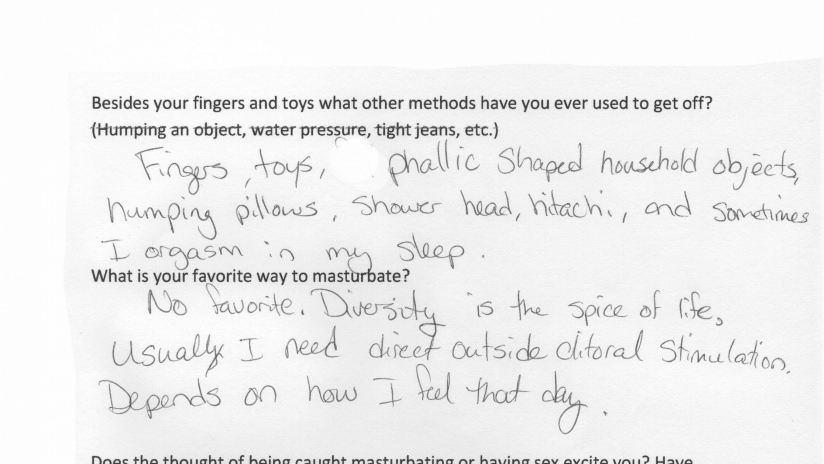 Besides your fingers and toys what other methods have you ever used to get off?
(Humping an object, water pressure, tight jeans, etc.)
Fingers, toys, phallic shaped household objects,
humping pillows, shower head, hitachi, and sometimes
I orgasm in my sleep.
What is your favorite way to masturbate?
No favorite. Diversity is the spice of life,
Usually I need direct outside clitoral stimulation.
Depends on how I feel that day.
Does the thought of being caught masturbating or having sex excite you? Have